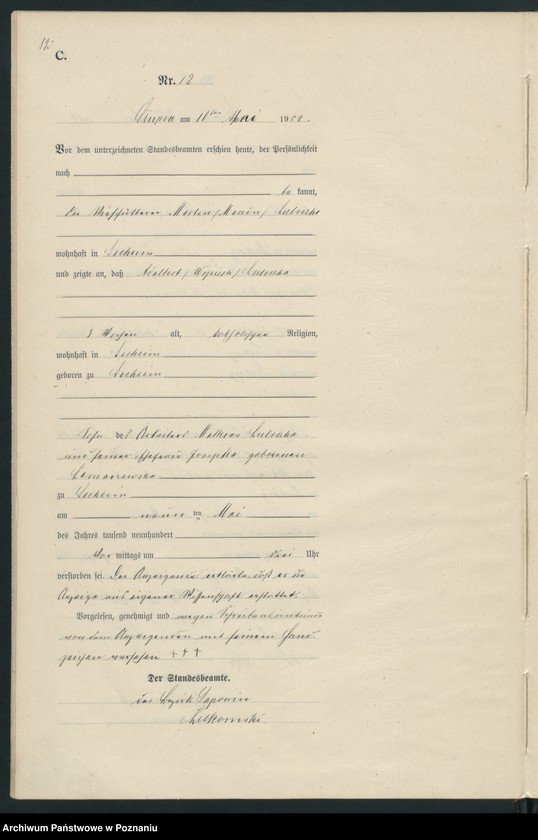 12
C.
Nr. 12
am 10ten Mai 1900.
Vor dem unterzeichneten Standesbeamten erschien heute, der Persönlichkeit
nach
be kannt,
der Martin
wohnhaft in Seeheim
und zeigte an, daß Adalbert
3 Wochen alt, katholischer Religion,
wohnhaft in Seeheim
geboren zu Seeheim
Sohn des Arbeiters Mathias
und seiner Ehefrau Josepha geborenen
zu Seeheim
am neun ten Mai
des Jahres tausend neunhundert
Vor mittags um drei Uhr
verstorben sei. Der Anzeigende erklärte, daß er die
Anzeige aus eigener Wissenschaft erstattet.
Vorgelesen, genehmigt und wegen Schreibensunkunde
von dem Anzeigenden mit seinem Hand-
zeichen versehen +++
Der Standesbeamte.
des Bezirk
Archiwum Państwowe w Poznaniu